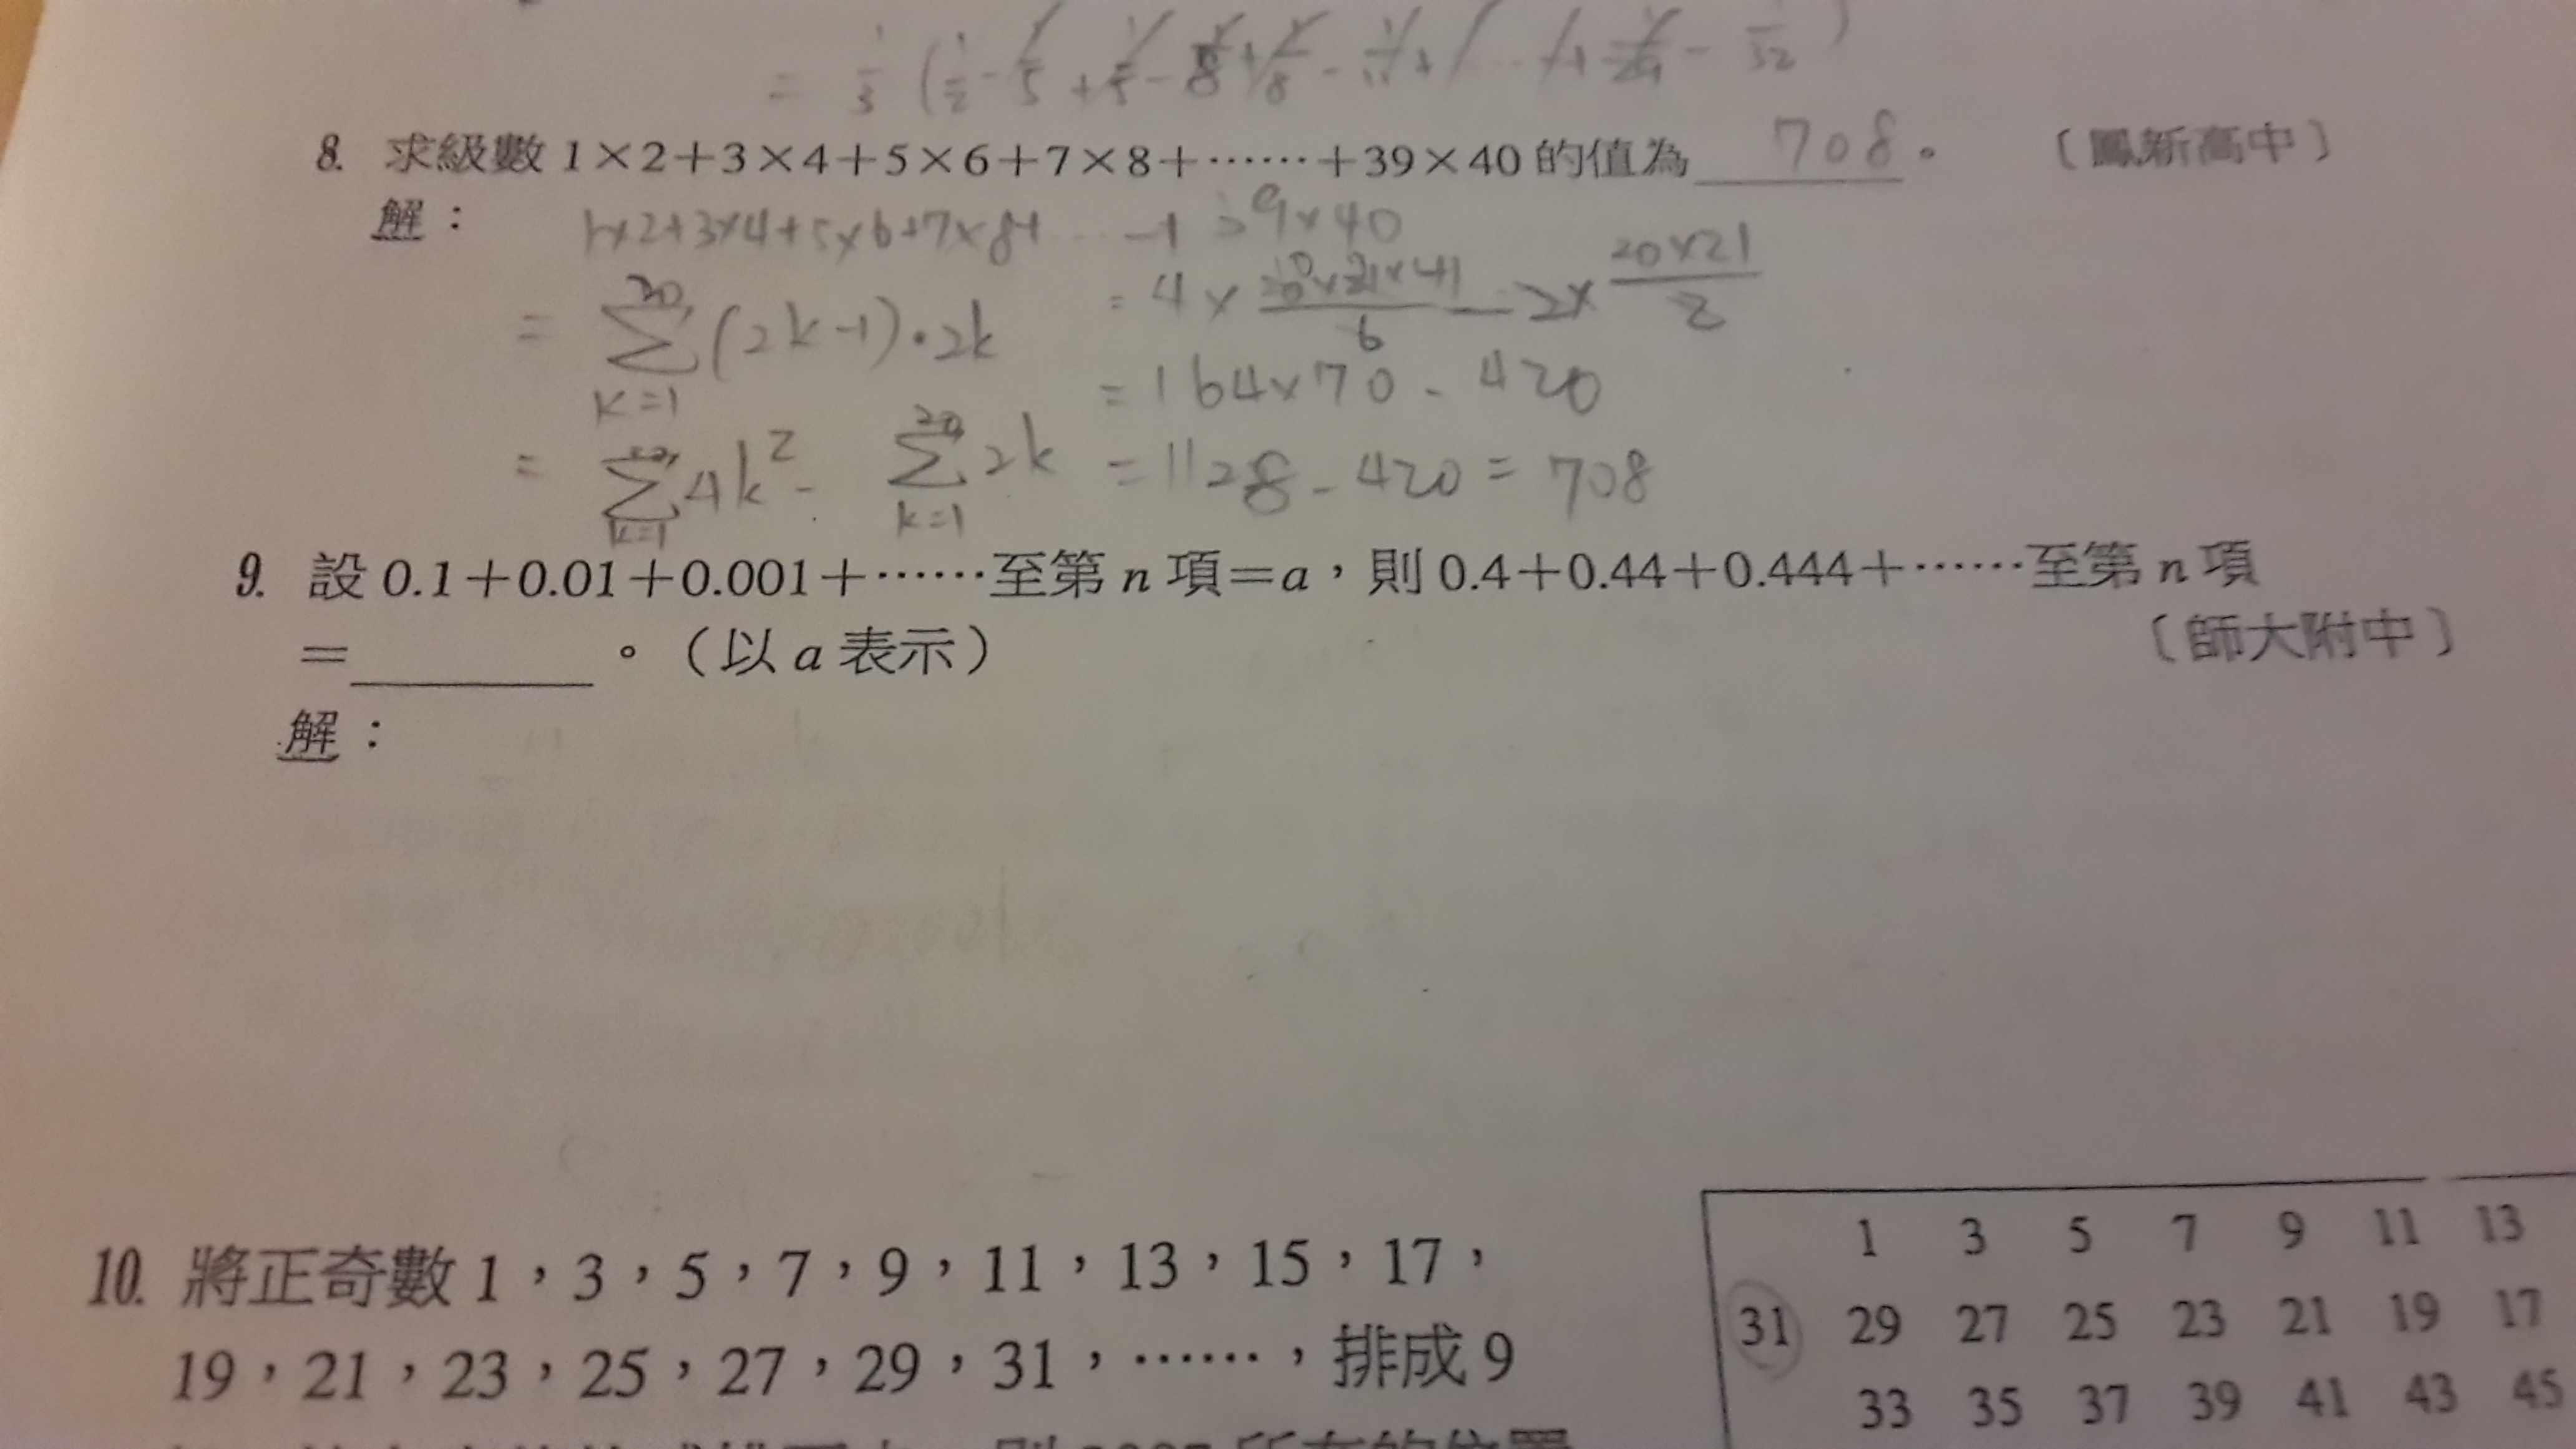 = 1/3 (1/2 - 1/5 + 1/5 - 1/8 + 1/8 - 1/11 + ... + 1/29 - 1/32)
8. 求級數 1×2+3×4+5×6+7×8+……+39×40 的值為 708 。 〔鳳新高中〕
解：
1×2+3×4+5×6+7×8+ ... + 39×40
= Σ(2k-1)·2k = 4× 20×21×41/6 - 2× 20×21/2
k=1
= 164×70 - 420
= Σ4k² - Σ2k = 1128 - 420 = 708
k=1 k=1
9. 設 0.1+0.01+0.001+……至第 n 項=a，則 0.4+0.44+0.444+……至第 n 項
=＿＿＿＿。（以 a 表示） 〔師大附中〕
解：
10. 將正奇數 1，3，5，7，9，11，13，15，17，
19，21，23，25，27，29，31，……，排成 9
1 3 5 7 9 11 13
31 29 27 25 23 21 19 17
33 35 37 39 41 43 45